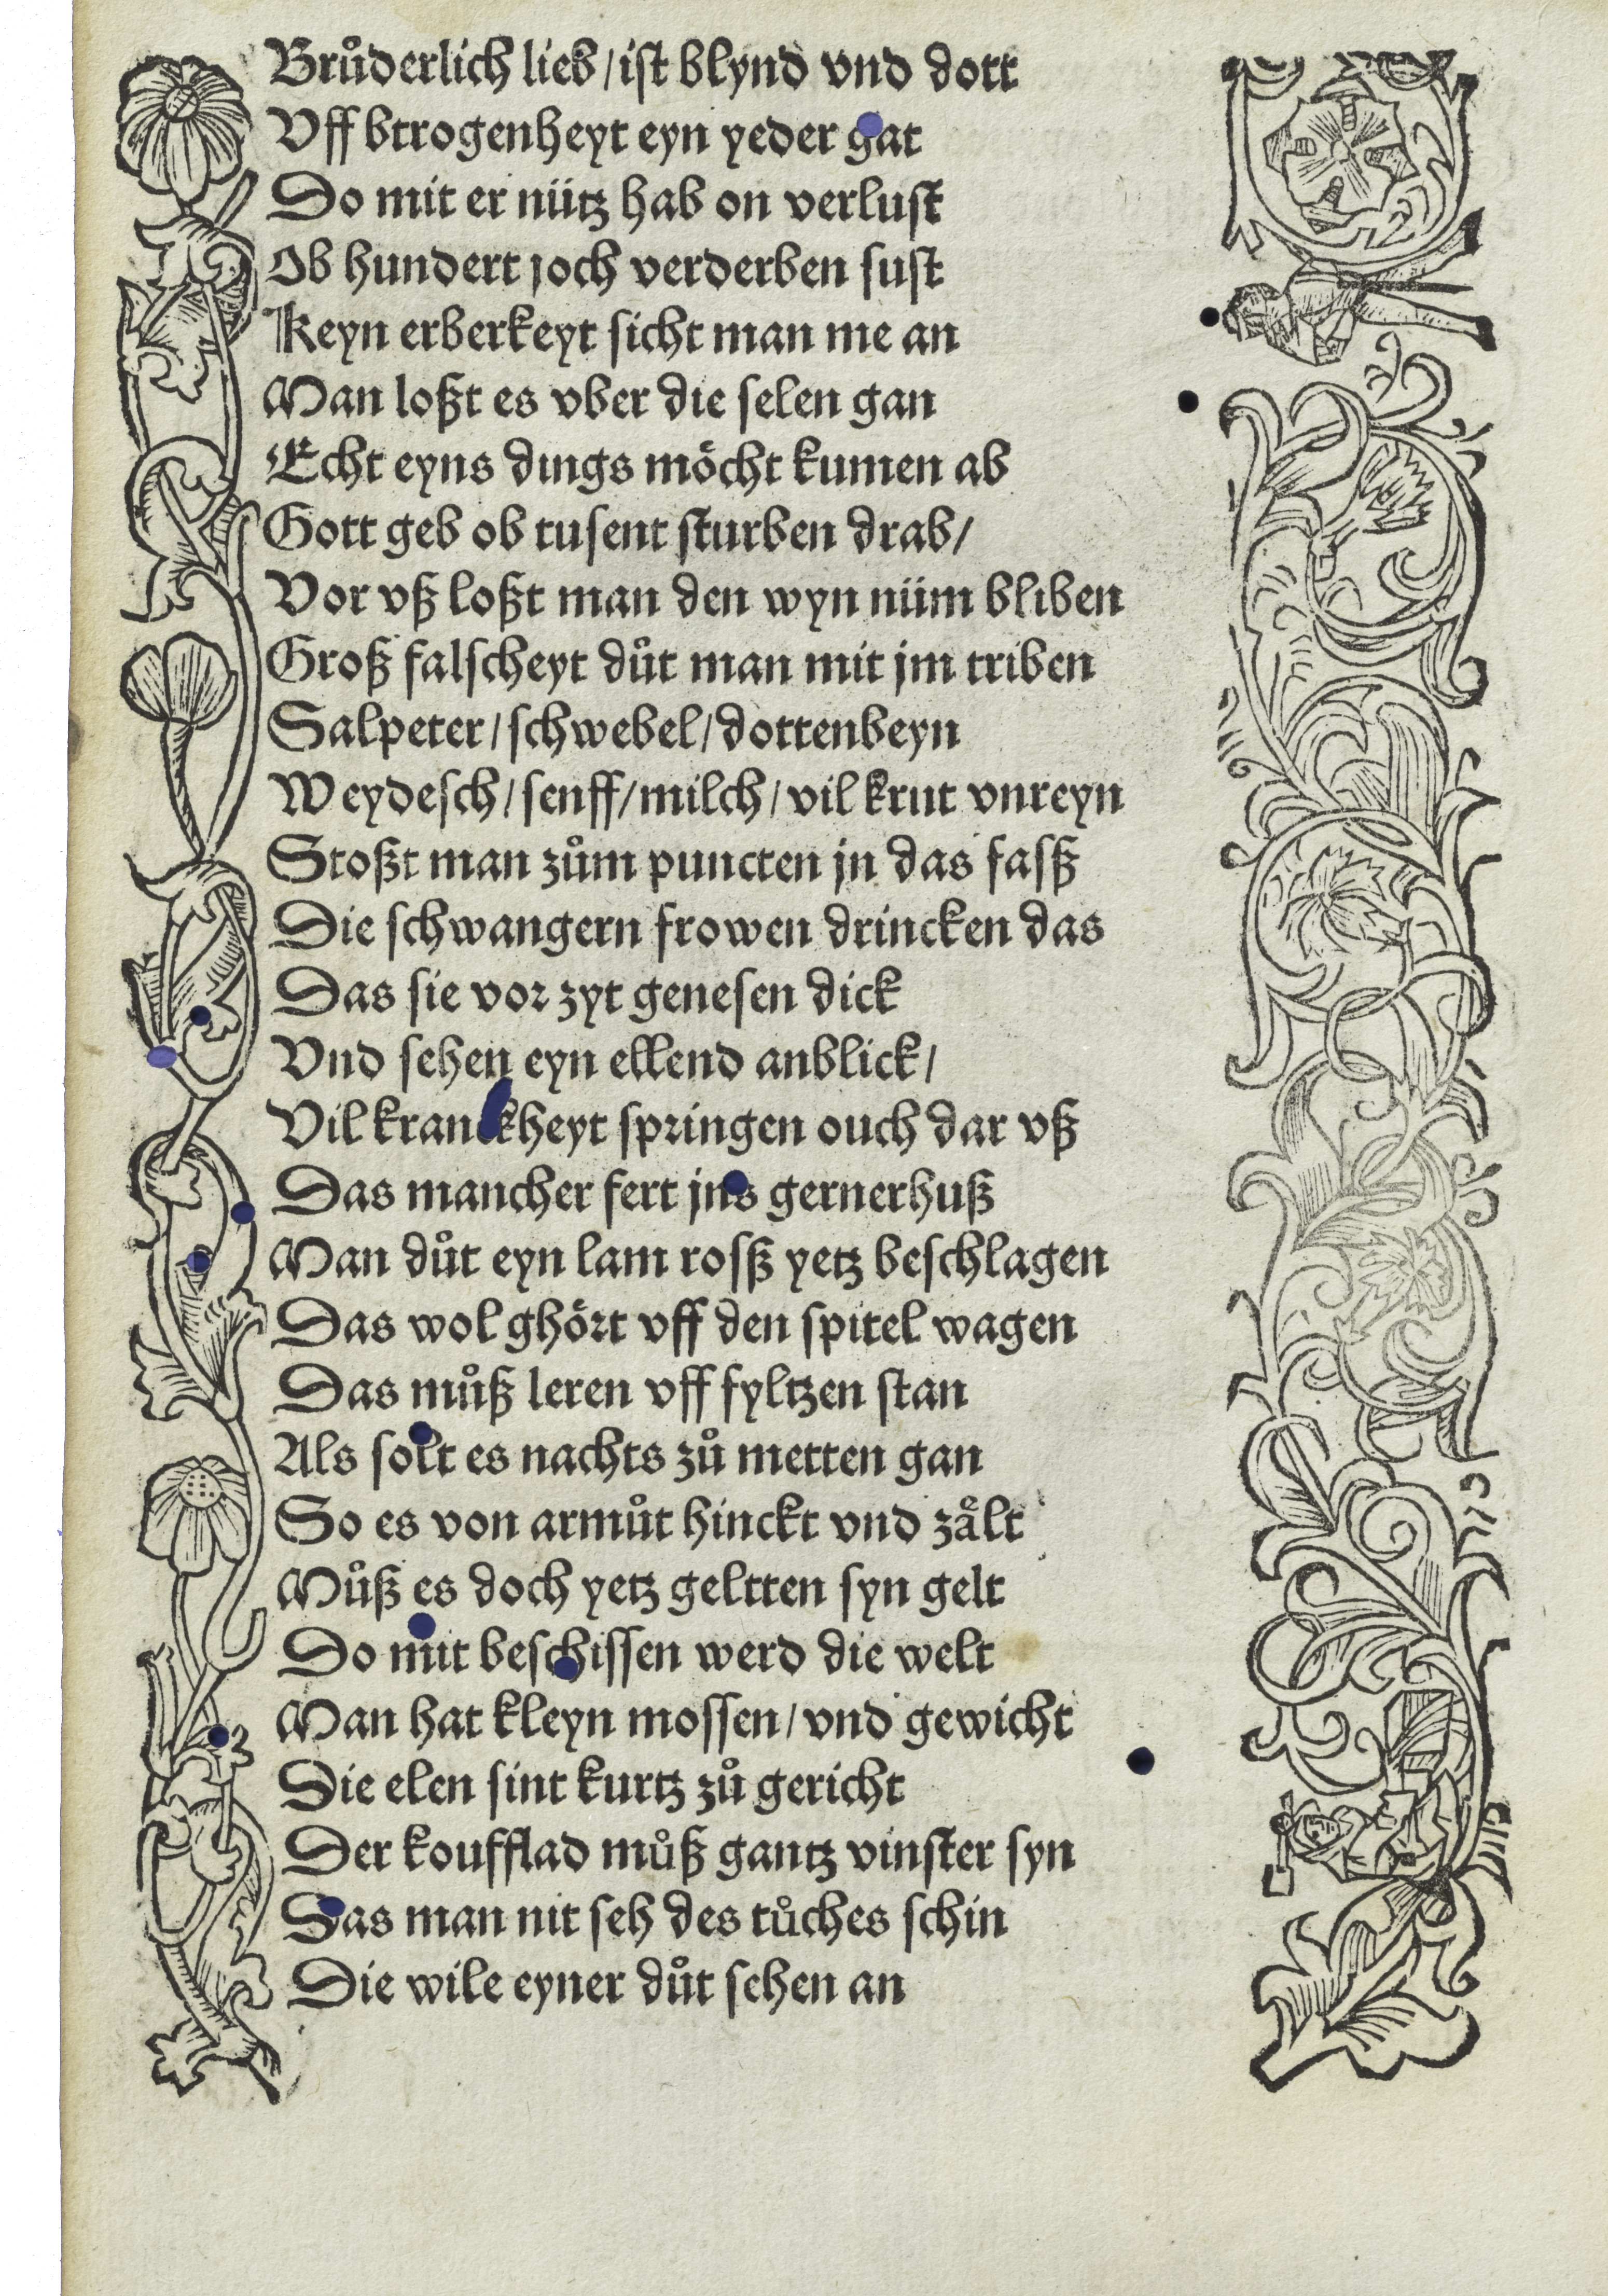 Bruͦderlich lieb / ist blynd vnd dott
Vff btrogenheyt eyn yeder gat
Do mit er nütz hab on verlust
Ob hundert joch verderben sust
Keyn erberkeyt sicht man me an
Man loßt es vber die selen gan
Echt eyns dings moͤcht kumen ab
Gott geb ob tusent sturben drab /
Vor vß loßt man den wyn nüm bliben
Groß falscheyt duͦt man mit jm triben
Salpeter / schwebel / dottenbeyn
Weydesch / senff / milch / vil krut vnreyn
Stoßt man zuͦm puncten jn das fasß
Die schwangern frowen drincken das
Das sie vor zyt genesen dick
Vnd sehen eyn ellend anblick /
Vil kranckheyt springen ouch dar vß
Das mancher fert jns gernerhuß
Man duͦt eyn lam rosß yetz beschlagen
Das wol ghoͤrt vff den spitel wagen
Das muͦß leren vff fyltzen stan
Als solt es nachts zuͦ metten gan
So es von armuͦt hinckt vnd zaͤlt
Muͦß es doch yetz geltten syn gelt
Do mit beschissen werd die welt
Man hat kleyn mossen / vnd gewicht
Die elen sint kurtz zuͦ gericht
Der koufflad muͦß gantz vinster syn
Das man nit seh des tuͦches schin
Die wile eyner duͦt sehen an